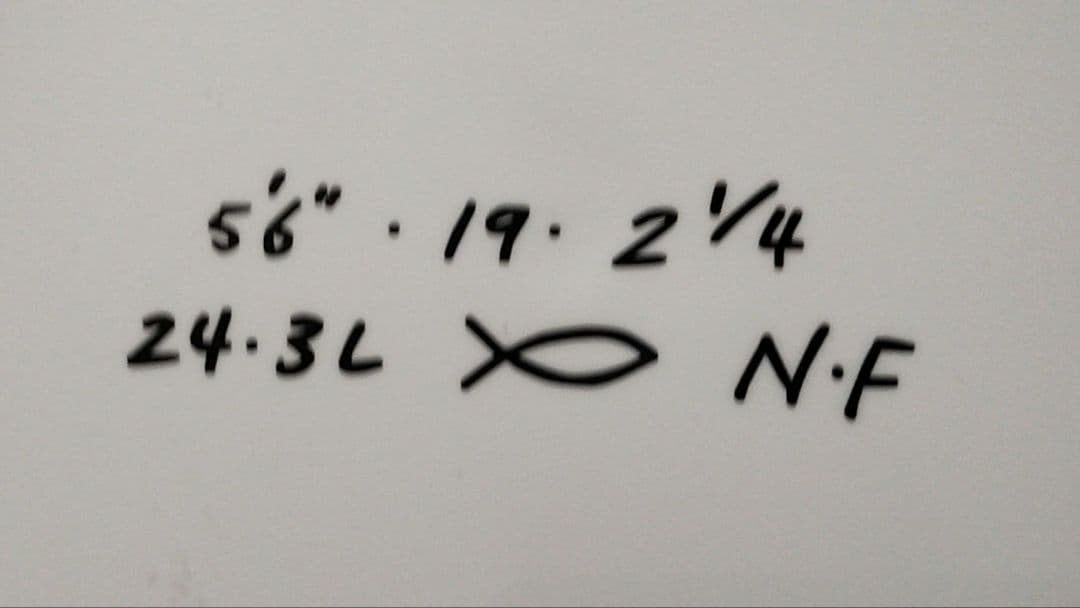 5'6" . 19 . 2 1/4
24.3L N.F